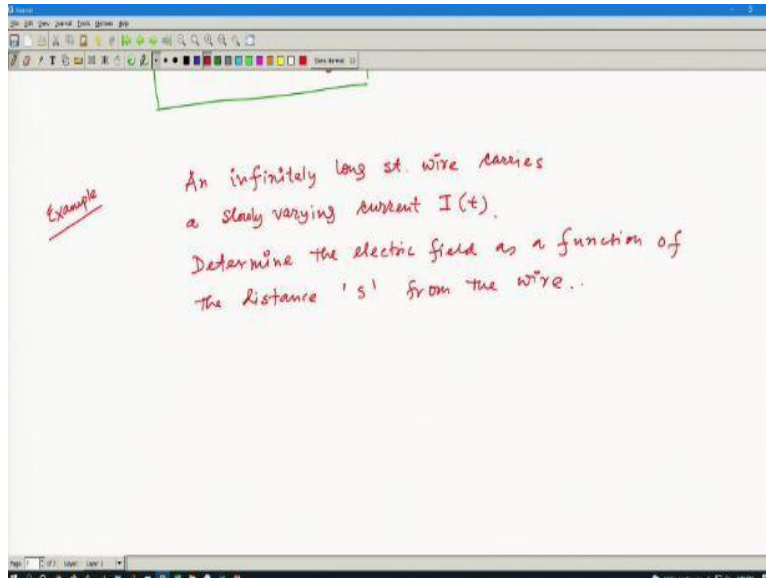 Example
An infinitely long st. wire carries
a slowly varying current I(t).
Determine the electric field as a function of
the distance 's' from the wire..